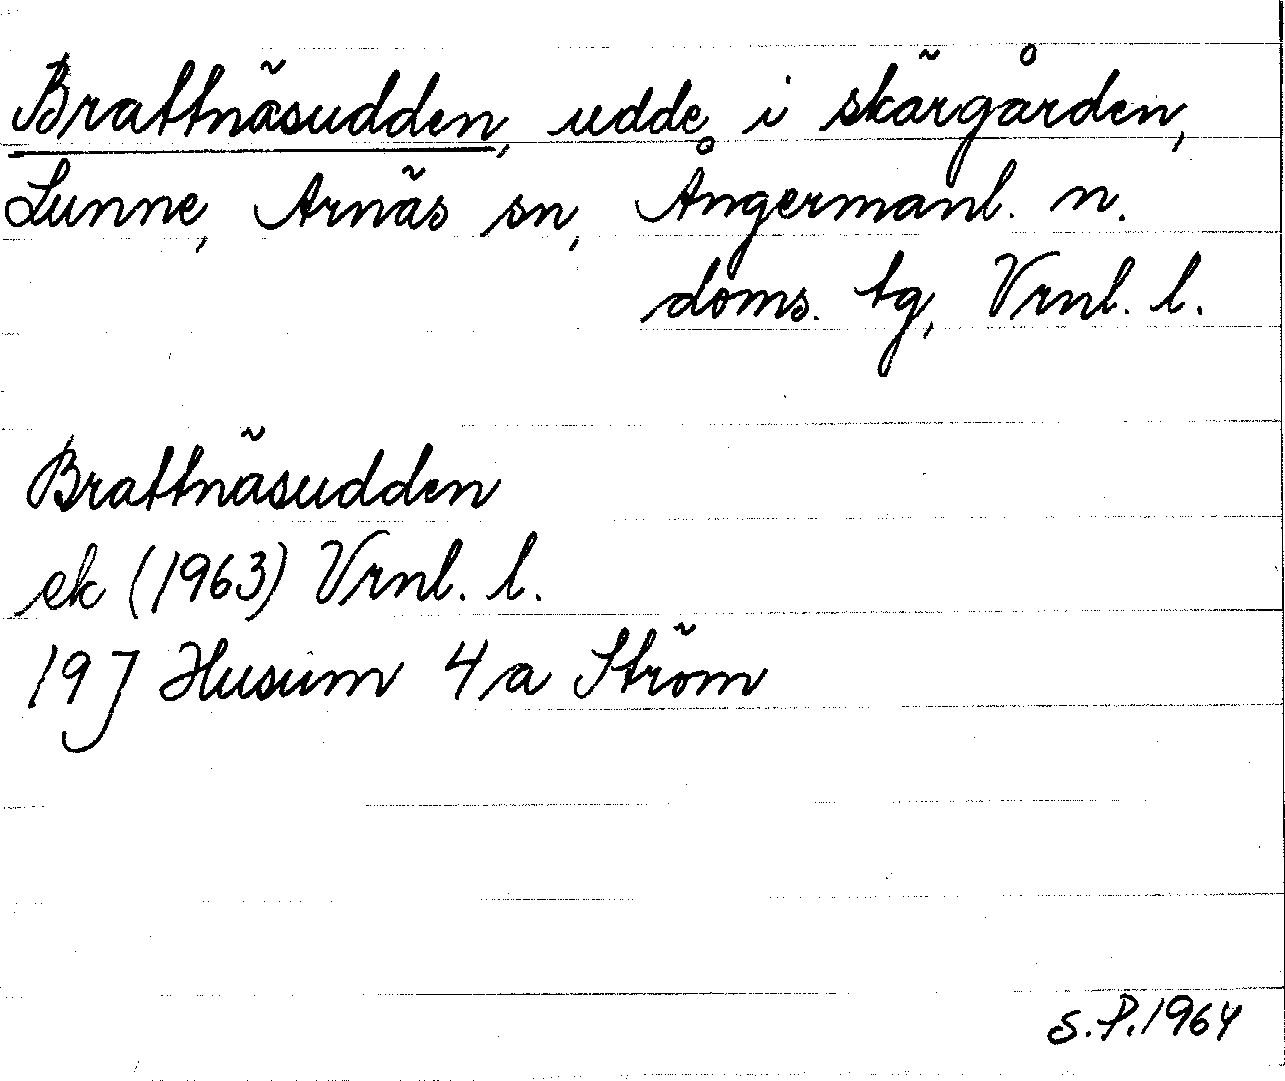 Brattnäsudden, udde i skärgården,
Lunne, Arnäs sn, Ångermanl. n.
doms. tg, Vrnl. l.
Brattnäsudden
ek (1963) Vrnl. l.
19 J Husum 4 a Ström
S.P. 1964